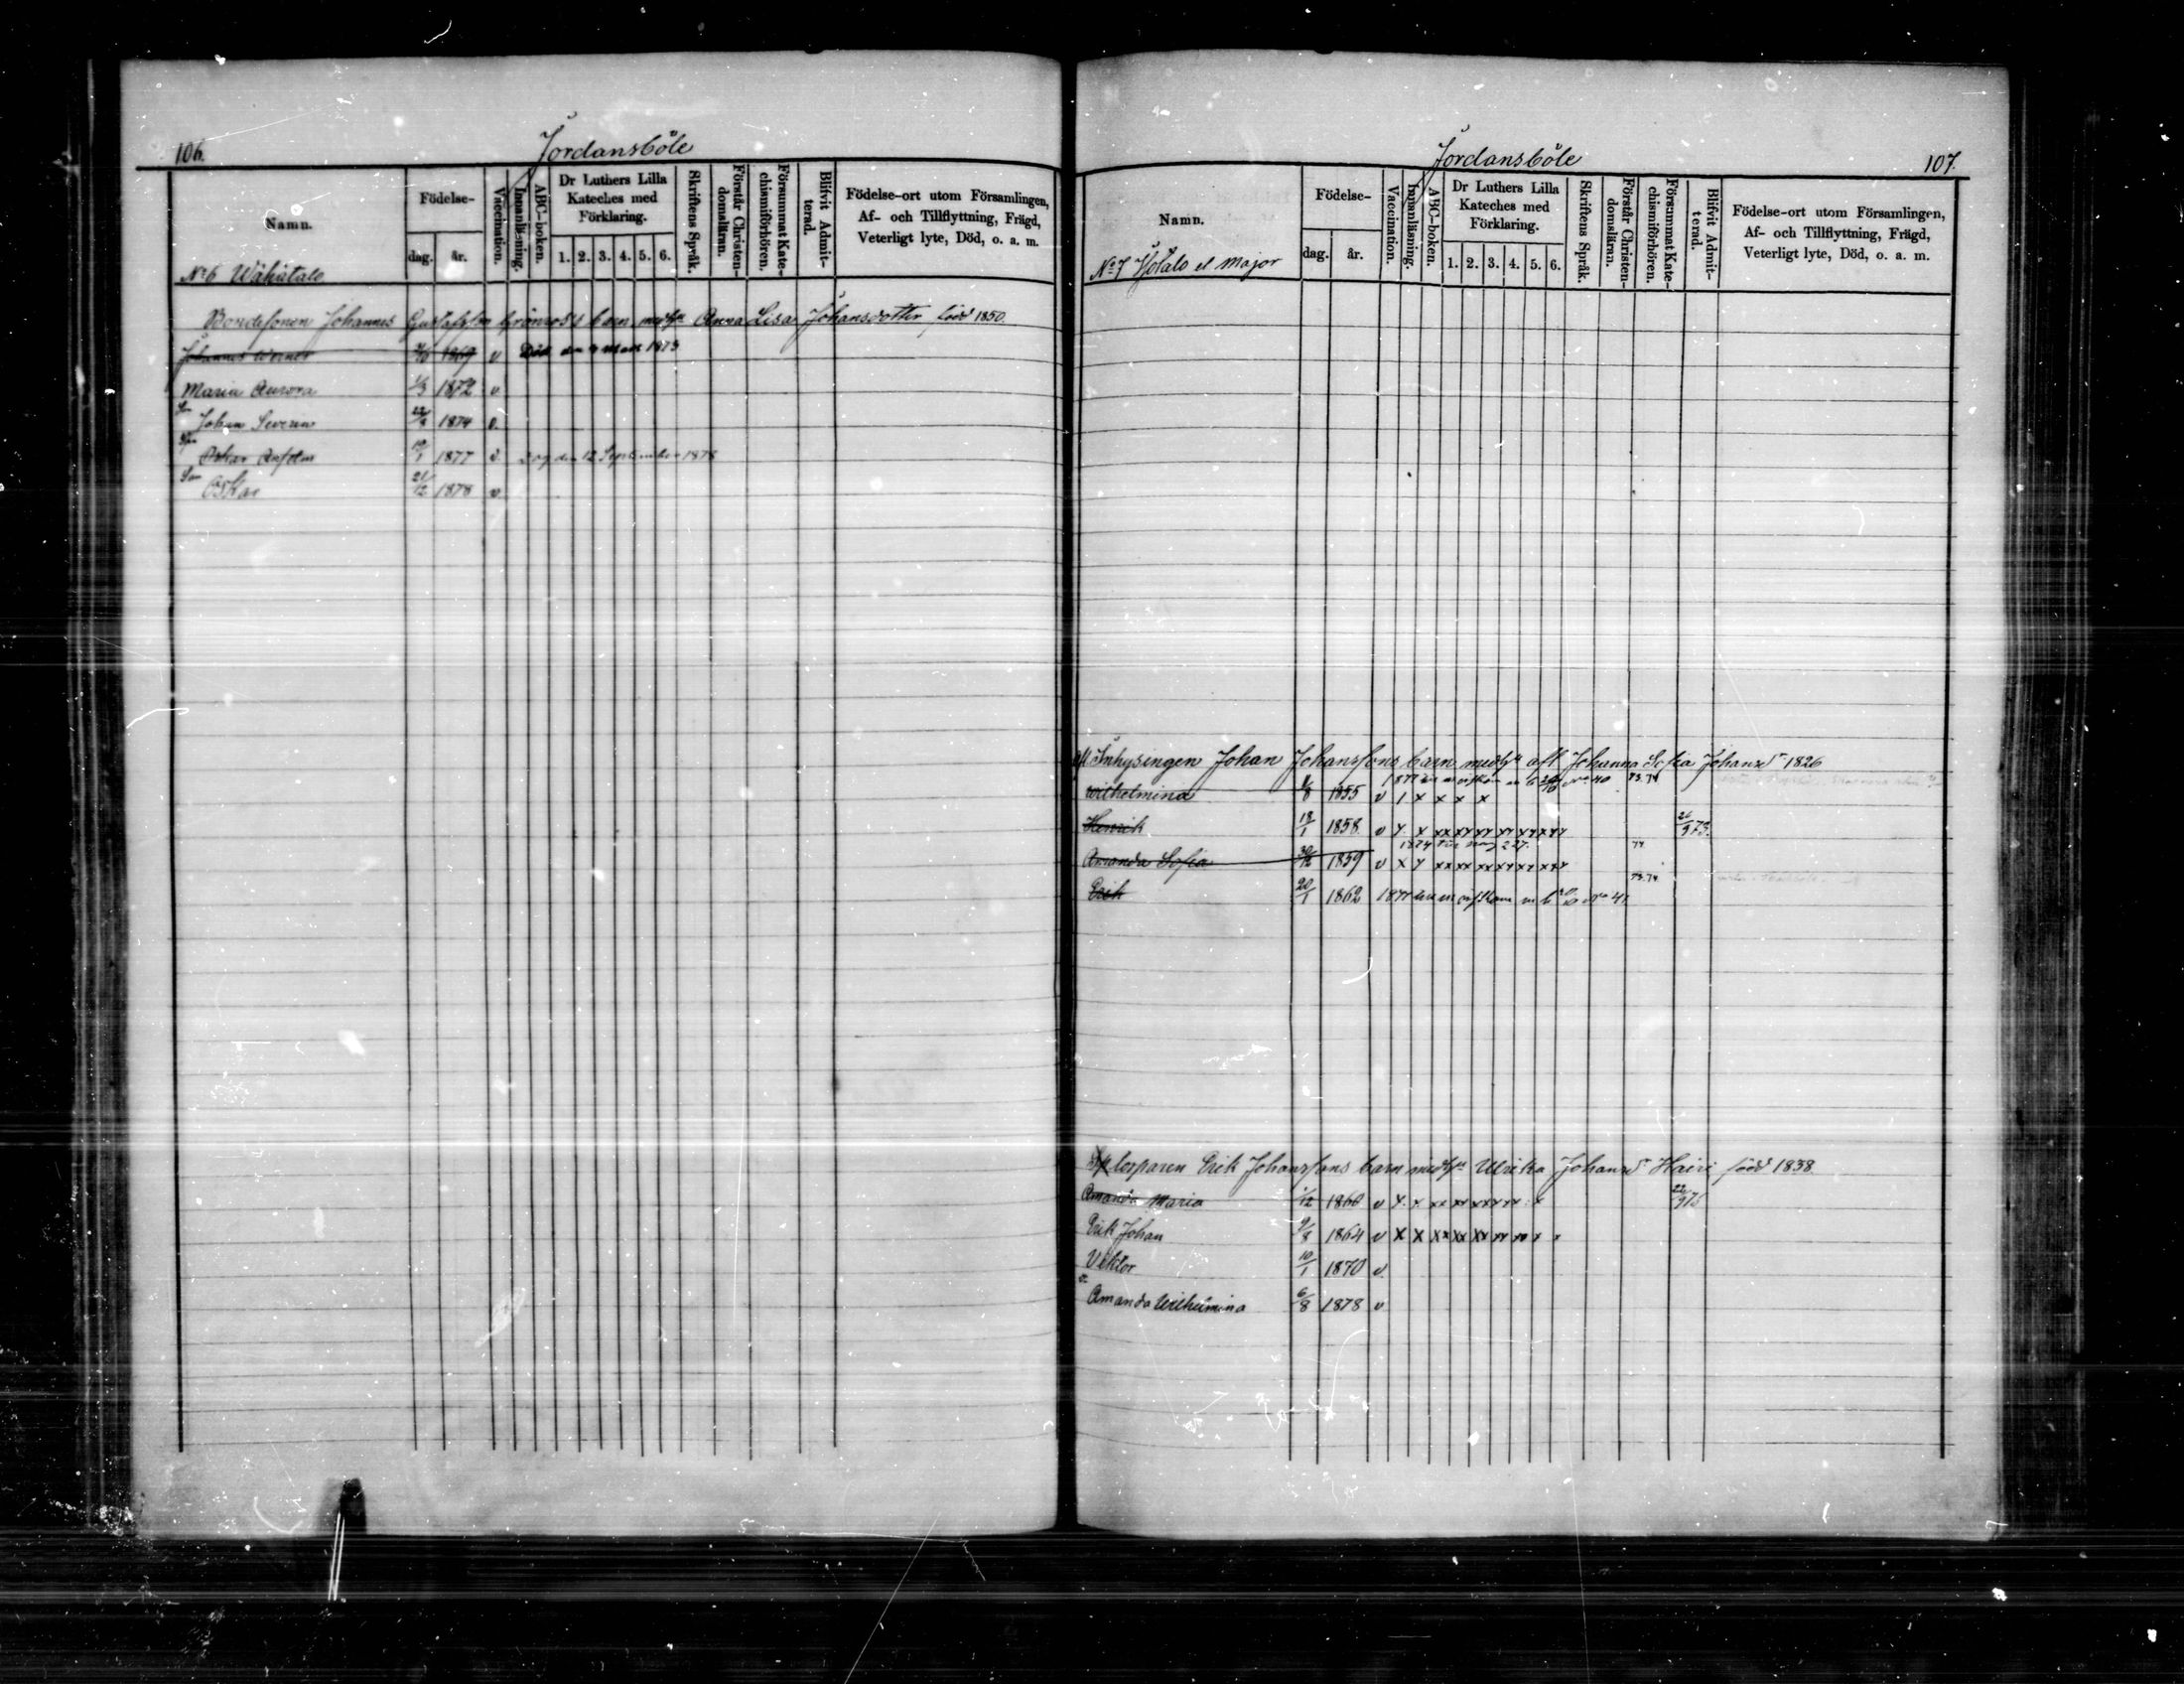 106.
Jordansböle
Namn.
Födelse-
dag. år.
Vaccination.
Innanläsning.
ABC-boken.
Dr Luthers Lilla
Kateches med
Förklaring.
1. 2. 3. 4. 5. 6.
Skriftens Språk.
Förstår Christen-
domsläran.
Försummat Kate-
chismiförhören.
Blifvit Admit-
terad.
Födelse-ort utom Församlingen,
Af- och Tillflyttning, Frägd,
Veterligt lyte, Död, o. a. m.
No 6 Wähätalo
Bondesonen Johannes Gustafsson Grönroos's barn med h. Anna Lisa Johansdotter född 1850.
Johannes Werner 1869 v Död den 9 1873
Maria Aurora 1/3 1872 v
Son Johan Severin 22/8 1874 v.
Son Oskar Anselm 19/1 1877 v. Dog den 12 September 1878
Son Oskar 21/12 1878 v
Jordansböle
107.
Namn.
Födelse-
dag. år.
Vaccination.
Innanläsning.
ABC-boken.
Dr Luthers Lilla
Kateches med
Förklaring.
1. 2. 3. 4. 5. 6.
Skriftens Språk.
Förstår Christen-
domsläran.
Försummat Kate-
chismiförhören.
Blifvit Admit-
terad.
Födelse-ort utom Församlingen,
Af- och Tillflyttning, Frägd,
Veterligt lyte, Död, o. a. m.
No 7 el Major
Inhysingen Johan Johanssons barn med h. afl. Johanna Sofia Johansdr 1826
No 40 73.74
Wilhelmina 1855 v 1 x x x x
Henrik 18/1 1858 v x x xx xx xx xx xx xxx
1874 227. 74
Amanda Sofia 30/12 1859 v x x xx xx xx xx xx xxx
73.74
Erik 20/1 1862 No 41
Erik Johanssons barn med h. Ulrika Johansdr född 1838
Amanda Maria 1/12 1860 v x x xx xx xx xx x 22/9 75
Erik Johan 9/8 1864 v x x xx xx xx xx xx x x
Viktor 10/1 1870 v.
Amanda Wilhelmina 6/8 1878 v